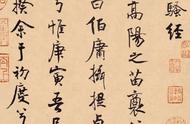 騷經
高陽之苗裔
曰伯庸攝提貞
兮惟庚寅吾
揆余于初度兮